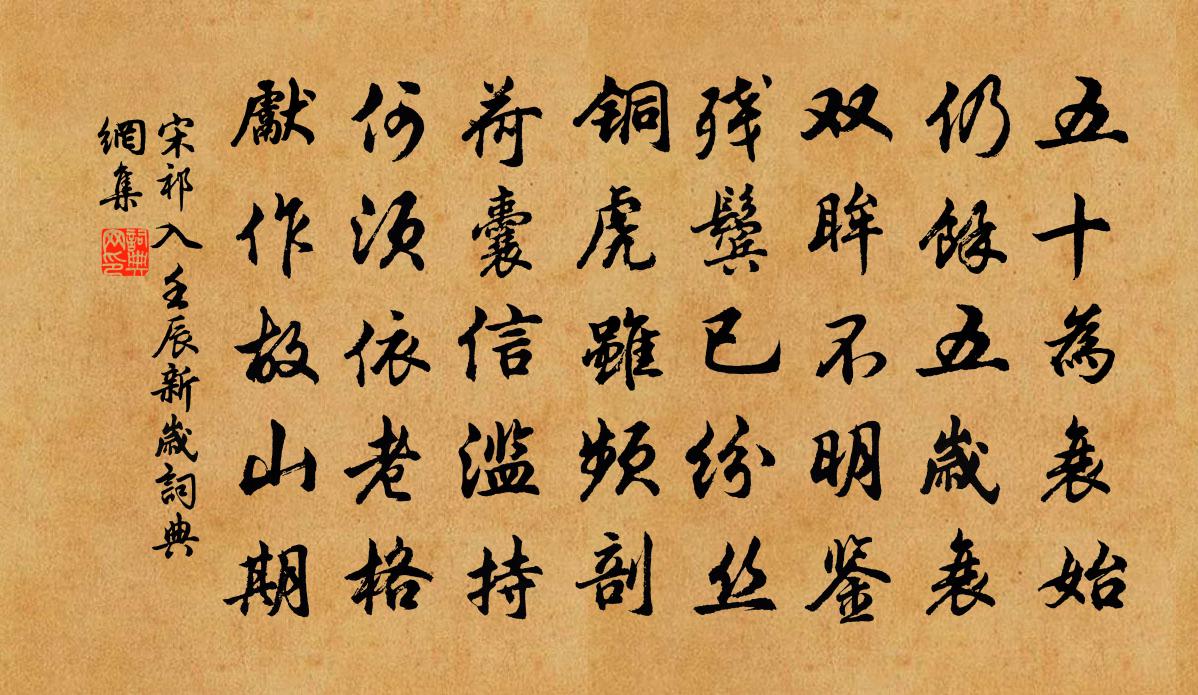 五十為衰始
仍餘五歲衰
双眸不明鉴
残鬢已纷丝
铜虎雖频剖
荷囊信滥持
何须依老格
獻作故山期
宋祁入壬辰新歲詞典
網集
詞典网印